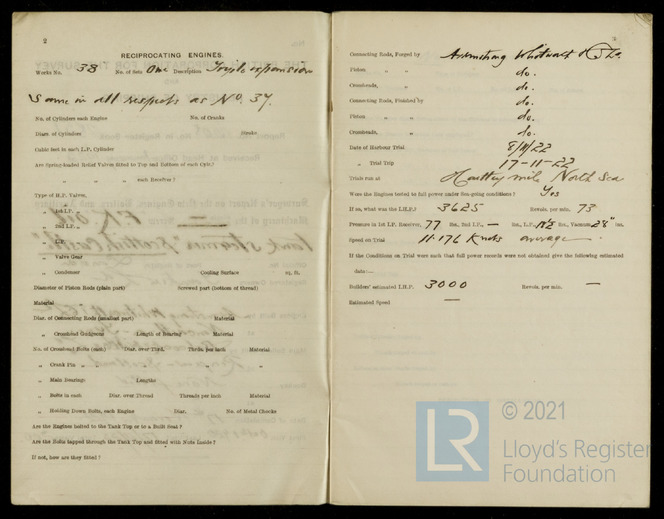 2
RECIPROCATING ENGINES.
Works No. 38 No. of Sets One Description Triple expansion
Same in all respects as No. 37.
No. of Cylinders each Engine No. of Cranks
Diars. of Cylinders Stroke
Cubic feet in each L.P. Cylinder
Are Spring-loaded Relief Valves fitted to Top and Bottom of each Cylr.?
„ „ „ each Receiver?
Type of H.P. Valves,
„ 1st I.P. „
„ 2nd I.P. „
„ L.P. „
„ Valve Gear
„ Condenser Cooling Surface sq. ft.
Diameter of Piston Rods (plain part) Screwed part (bottom of thread)
Material
Diar. of Connecting Rods (smallest part) Material
„ Crosshead Gudgeons Length of Bearing Material
No. of Crosshead Bolts (each) Diar. over Thrd. Thrds. per inch Material
„ Crank Pin „ „ „ „ „
„ Main Bearings Lengths
„ Bolts in each Diar. over Thread Threads per inch Material
„ Holding Down Bolts, each Engine Diar. No. of Metal Chocks
Are the Engines bolted to the Tank Top or to a Built Seat?
Are the Bolts tapped through the Tank Top and fitted with Nuts Inside?
If not, how are they fitted?
3
Connecting Rods, Forged by Armstrong Whitworth & Co.
Piston „ „ do.
Crossheads, „ do.
Connecting Rods, Finished by do.
Piston „ „ do.
Crossheads, „ do.
Date of Harbour Trial 8/11/22
„ Trial Trip 17-11-22
Trials run at mile North Sea
Were the Engines tested to full power under Sea-going conditions? Yes
If so, what was the I.H.P.? 3625 Revols. per min. 73
Pressure in 1st I.P. Receiver, 77 lbs., 2nd I.P., — lbs., L.P., lbs., Vacuum, 28" ins.
Speed on Trial 11.176 Knots average
If the Conditions on Trial were such that full power records were not obtained give the following estimated
data:—
Builders' estimated I.H.P. 3000 Revols. per min. —
Estimated Speed —
LR
© 2021
Lloyd's Register
Foundation